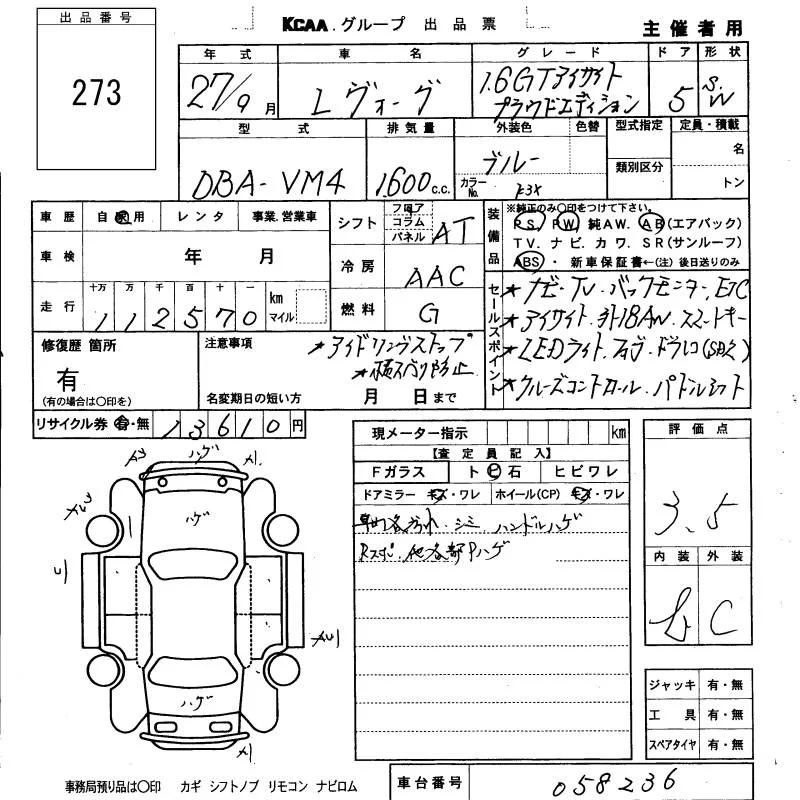 出品番号
273
KCAA.グループ 出品票
主催者用
年式 車名 グレード ドア 形状
27/9月 レヴォーグ 1.6GTアイサイト プラウドエディション 5 S.W
型式 排気量 外装色 色替 型式指定 定員・積載
DBA-VM4 1600c.c. ブルー 名
カラーNo. K3X 類別区分 トン
車歴 自家用 レンタ 事業.営業車
車検 年 月
走行 十万 万 千 百 十 一 km マイル
112570
シフト フロア コラム パネル AT
冷房 AAC
燃料 G
装備品 ※純正のみ○印をつけて下さい。
P S. P W. 純AW. A B(エアバック)
TV. ナビ. カワ. SR(サンルーフ)
ABS ・ 新車保証書←(注) 後日送りのみ
セールスポイント
★ナビ・TV・バックモニター、ETC
★アイサイト・外18AW・スマートキー
★LEDライト・フォグ・ドラレコ(SD欠)
★クルーズコントロール・パドルシフト
修復歴 箇所
有
(有の場合は○印を)
注意事項
★アイドリングストップ
★横スベリ防止
名変期日の短い方 月 日まで
リサイクル券 有・無 13610円
現メーター指示 km
【査定員記入】
Fガラス ト ビ 石 ヒビワレ
ドアミラー キズ・ワレ ホイール(CP) キズ・ワレ
シミ ハンドルハゲ
他各部Pハゲ
評価点
3.5
内装 外装
b C
ハゲ
ハゲ
ハゲ
ジャッキ 有・無
工具 有・無
スペアタイヤ 有・無
事務局預り品は○印 カギ シフトノブ リモコン ナビロム
車台番号 058236